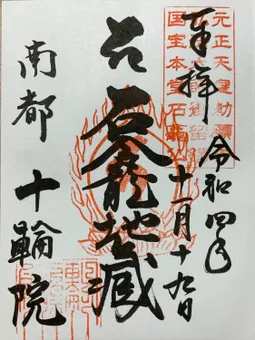 奉拝
令和四年
十一月十九日
石龕地蔵
南都
十輪院
元正天皇勅願
国宝本堂石龕仏